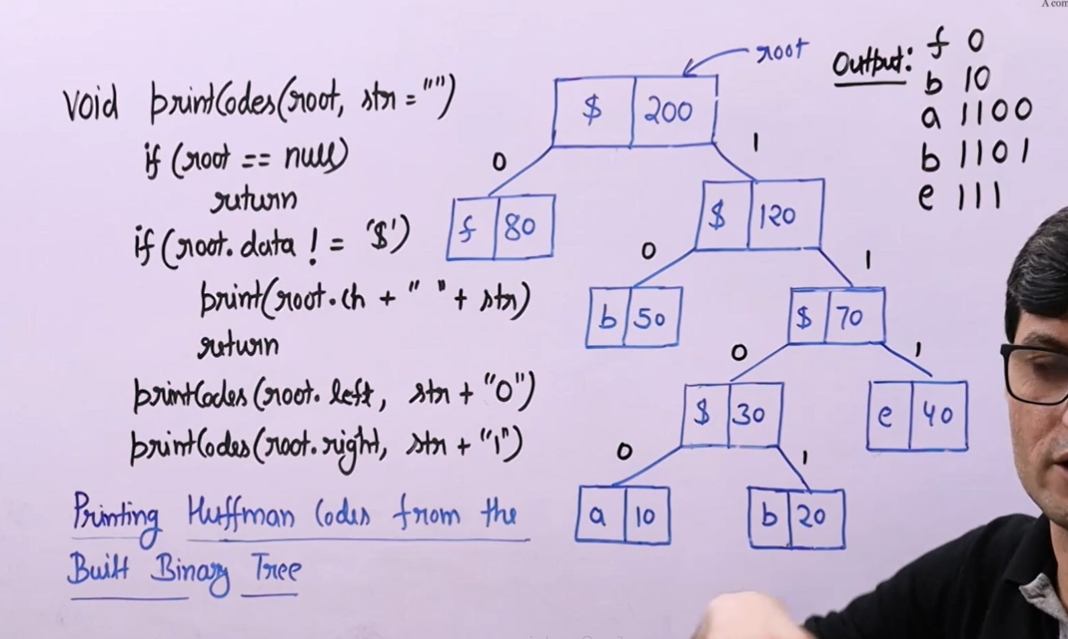 A com
void printCodes(root, str = "")
if (root == null)
return
if (root.data != '$')
print(root.ch + " " + str)
return
printCodes(root.left, str + "0")
printCodes(root.right, str + "1")
Printing Huffman Codes from the
Built Binary Tree
root
$ 200
0 1
f 80
$ 120
0 1
b 50
$ 70
0 1
$ 30
e 40
0 1
a 10
b 20
Output: f 0
b 10
a 1100
b 1101
e 111